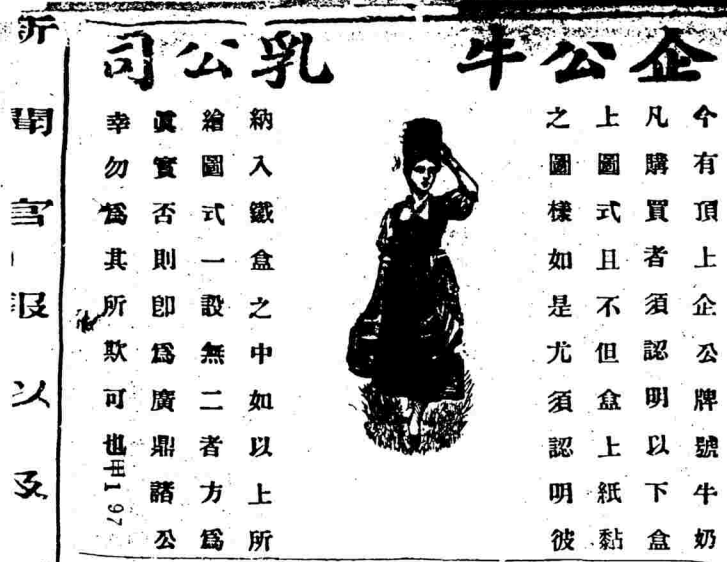 企公牛乳公司
今有頂上企公牌號牛奶
凡購買者須認明以下盒
上圖式且不但盒上紙黏
之圖樣如是尤須認明彼
納入鐵盒之中如以上所
繪圖式一設無二者方爲
眞實否則卽爲廣鼎諸公
幸勿爲其所欺可也
甲1 97
聞官報以及